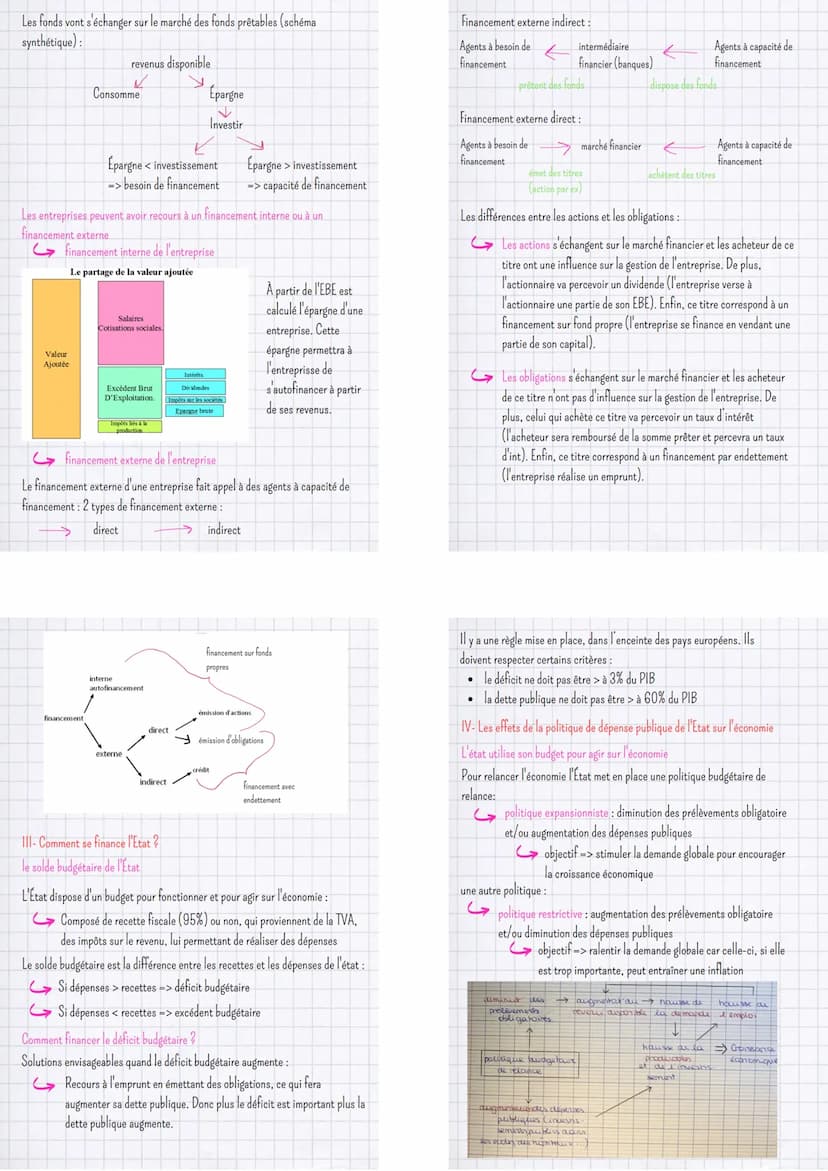 Les fonds vont s'échanger sur le marché des fonds prêtables (schéma
synthétique) :
revenus disponible
Consomme
Épargne
Investir
Épargne < investissement
=> besoin de financement
Épargne > investissement
=> capacité de financement
Les entreprises peuvent avoir recours à un financement interne ou à un
financement externe
financement interne de l'entreprise
Le partage de la valeur ajoutée
Valeur
Ajoutée
Salaires
Cotisations sociales.
Excédent Brut
D'Exploitation.
Impôts liés à la
production
Intérêts.
Dividendes
Impôts sur les sociétés
Epargne brute
À partir de l'EBE est
calculé l'épargne d'une
entreprise. Cette
épargne permettra à
l'entreprisse de
s'autofinancer à partir
de ses revenus.
financement externe de l'entreprise
Le financement externe d'une entreprise fait appel à des agents à capacité de
financement : 2 types de financement externe :
direct
indirect
Financement externe indirect :
Agents à besoin de
financement
intermédiaire
financier (banques)
Agents à capacité de
financement
prêtent des fonds
dispose des fonds
Financement externe direct :
Agents à besoin de
financement
marché financier
Agents à capacité de
financement
émet des titres
(action par ex)
achètent des titres
Les différences entre les actions et les obligations :
Les actions s'échangent sur le marché financier et les acheteur de ce
titre ont une influence sur la gestion de l'entreprise. De plus,
l'actionnaire va percevoir un dividende (l'entreprise verse à
l'actionnaire une partie de son EBE). Enfin, ce titre correspond à un
financement sur fond propre (l'entreprise se finance en vendant une
partie de son capital).
Les obligations s'échangent sur le marché financier et les acheteur
de ce titre n'ont pas d'influence sur la gestion de l'entreprise. De
plus, celui qui achète ce titre va percevoir un taux d'intérêt
(l'acheteur sera remboursé de la somme prêter et percevra un taux
d'int). Enfin, ce titre correspond à un financement par endettement
(l'entreprise réalise un emprunt).
financement sur fonds
propres
interne
autofinancement
financement
externe
direct
indirect
émission d'actions
émission d'obligations
crédit
financement avec
endettement
III- Comment se finance l'Etat ?
le solde budgétaire de l'État
L'État dispose d'un budget pour fonctionner et pour agir sur l'économie :
Composé de recette fiscale (95%) ou non, qui proviennent de la TVA,
des impôts sur le revenu, lui permettant de réaliser des dépenses
Le solde budgétaire est la différence entre les recettes et les dépenses de l'état :
Si dépenses > recettes => déficit budgétaire
Si dépenses < recettes => excédent budgétaire
Comment financer le déficit budgétaire ?
Solutions envisageables quand le déficit budgétaire augmente :
Recours à l'emprunt en émettant des obligations, ce qui fera
augmenter sa dette publique. Donc plus le déficit est important plus la
dette publique augmente.
Il y a une règle mise en place, dans l'enceinte des pays européens. Ils
doivent respecter certains critères :
• le déficit ne doit pas être > à 3% du PIB
• la dette publique ne doit pas être > à 60% du PIB
IV- Les effets de la politique de dépense publique de l'Etat sur l'économie
L'état utilise son budget pour agir sur l'économie
Pour relancer l'économie l'État met en place une politique budgétaire de
relance:
politique expansionniste : diminution des prélèvements obligatoire
et/ou augmentation des dépenses publiques
objectif => stimuler la demande globale pour encourager
la croissance économique
une autre politique :
politique restrictive : augmentation des prélèvements obligatoire
et/ou diminution des dépenses publiques
objectif => ralentir la demande globale car celle-ci, si elle
est trop importante, peut entraîner une inflation
diminut des
prélèvements
obligatoires
augmentation
revenu disponible
hausse de
la demande
hausse de
l'emploi
hausse de la
production
et de l'investis
sement
=> Croissance
économique
politique budgétaire
de relance
augmentation des dépenses
publiques (investis-